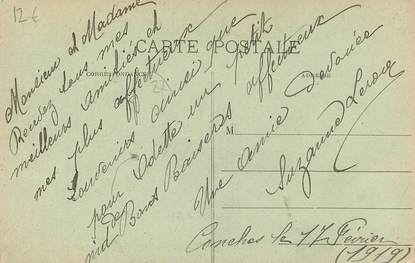 12€
CARTE POSTALE
CORRESPONDANCE
ADRESSE
M
Monsieur et Madame
Recevez tous mes
meilleurs amitiés et
mes plus affectueux
souvenirs ainsi que
pour Odette un petit
nid de Bons Baisers affectueux
Une amie dévouée
Suzanne Leroy
Conches le 17 Février
(1919)